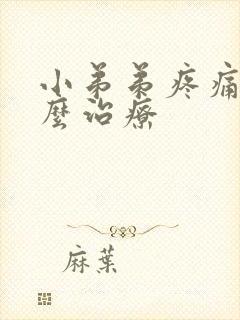 小弟弟疼痛
麼治療
麻葉